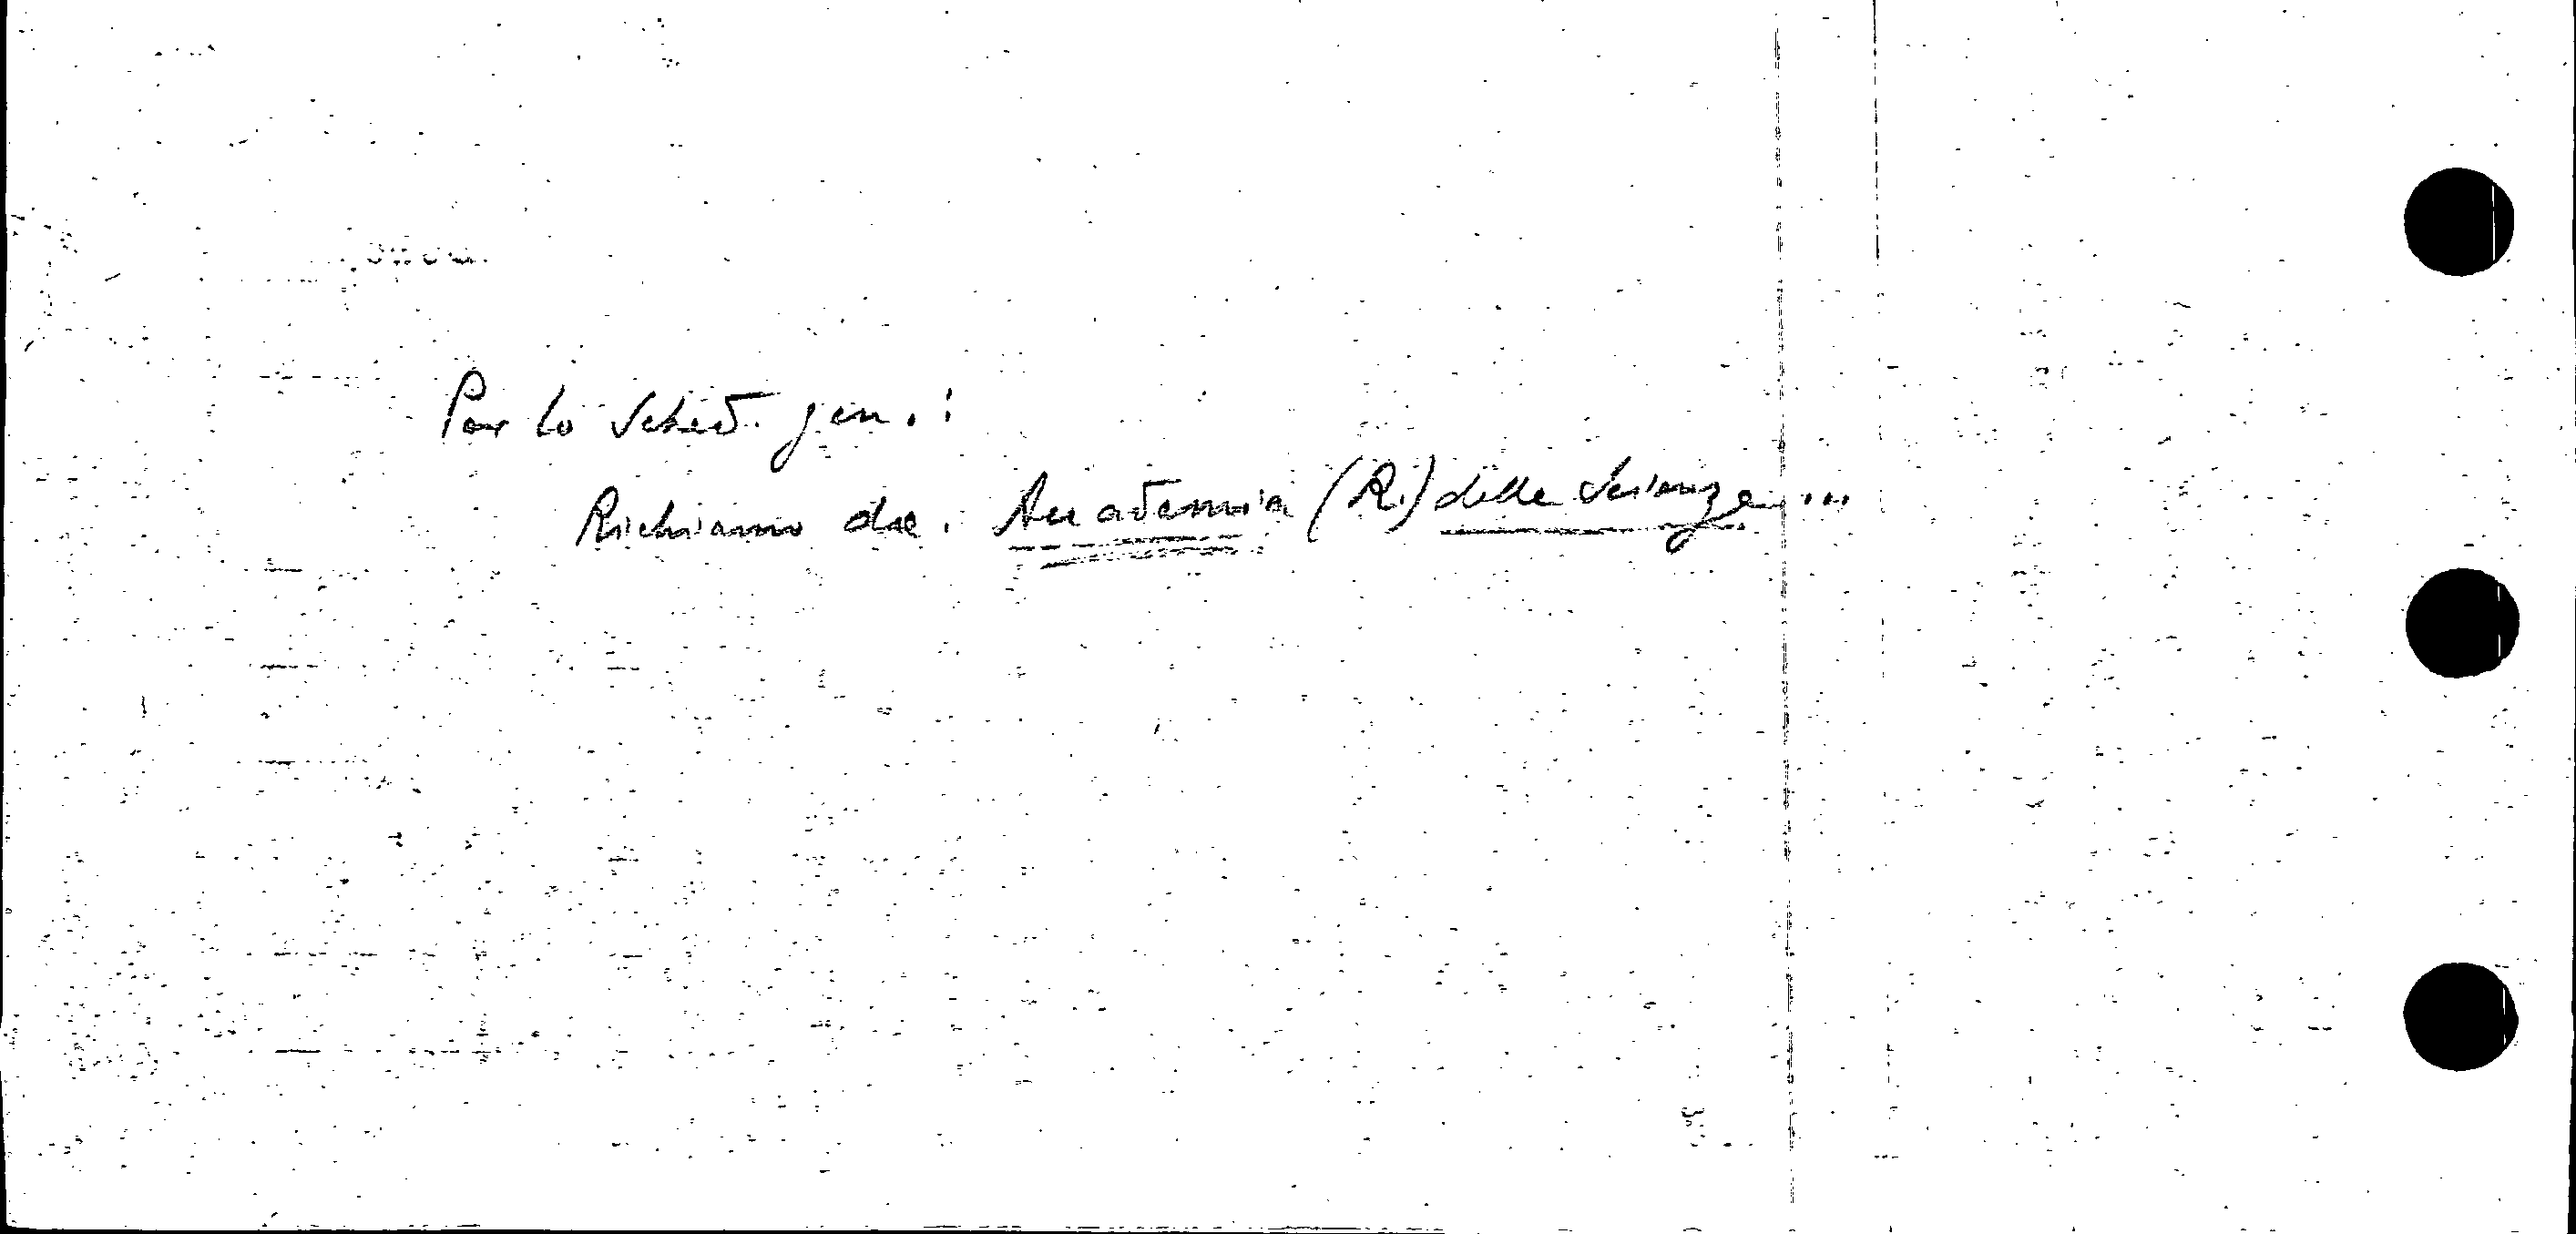 Per lo Sched. gen. :
Richiamo da: Accademia (R.) delle Scienze ...